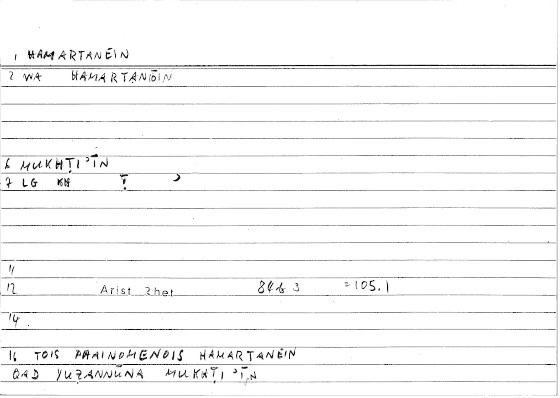 1 HAMARTANEIN
2 WA HAMARTANŌIN
6 MUKHṬI'ĪN
7 LG KH Ṭ '
11
12 Arist Rhet 84b 3 =105.1
14
16 TOIS PHAINOMENOIS HAMARTANEIN
QAD YUẒANNŪNA MUKHṬI'ĪN